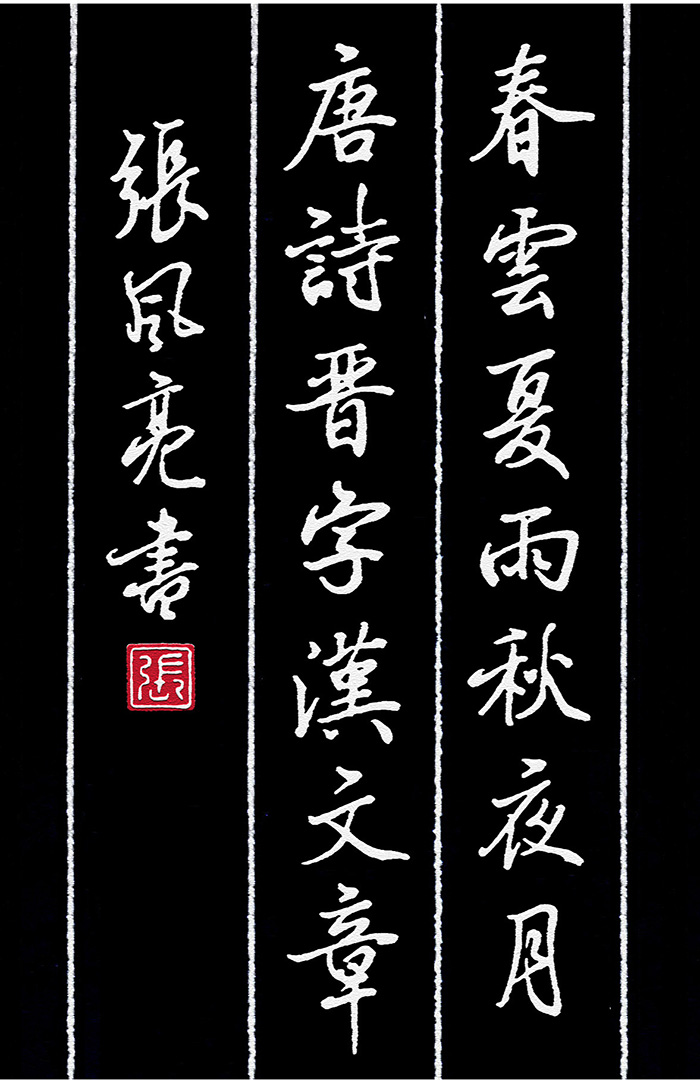 春雲夏雨秋夜月
唐詩晋字漢文章
張风亮書
張